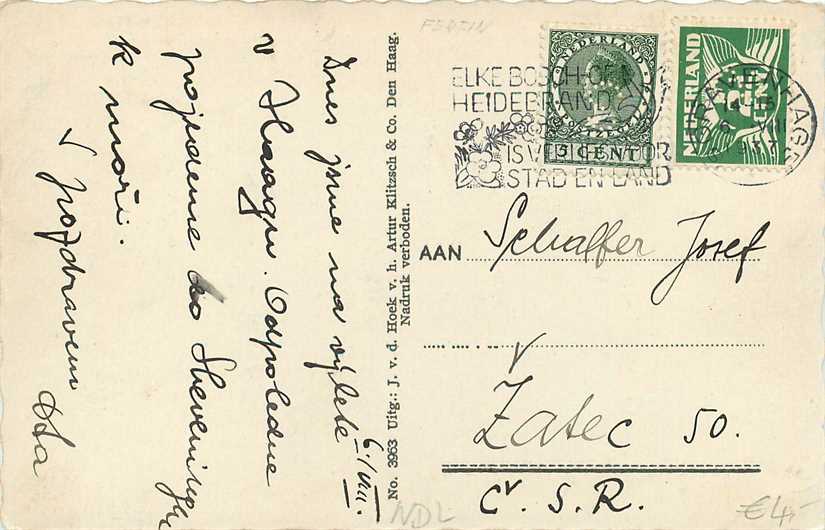 Dnes jsme na výletě 6./VIII.
v Haagu. Odpoledne
pojedeme do Sheveningu
k moři.
S pozdravem
No. 3963 Uitg.: J. v. d. Hoek v. h. Artur Klitzsch & Co. Den Haag.
Nadruk verboden.
ELKE BOSCH- OF
HEIDEBRAND
IS VERLIES VOOR
STAD EN LAND
NEDERLAND
3 CENT
NEDERLAND
CENT
'S GRAVENHAGE
AAN Schaffer Josef
Žatec 50.
Č.S.R.
NDL
€4,-